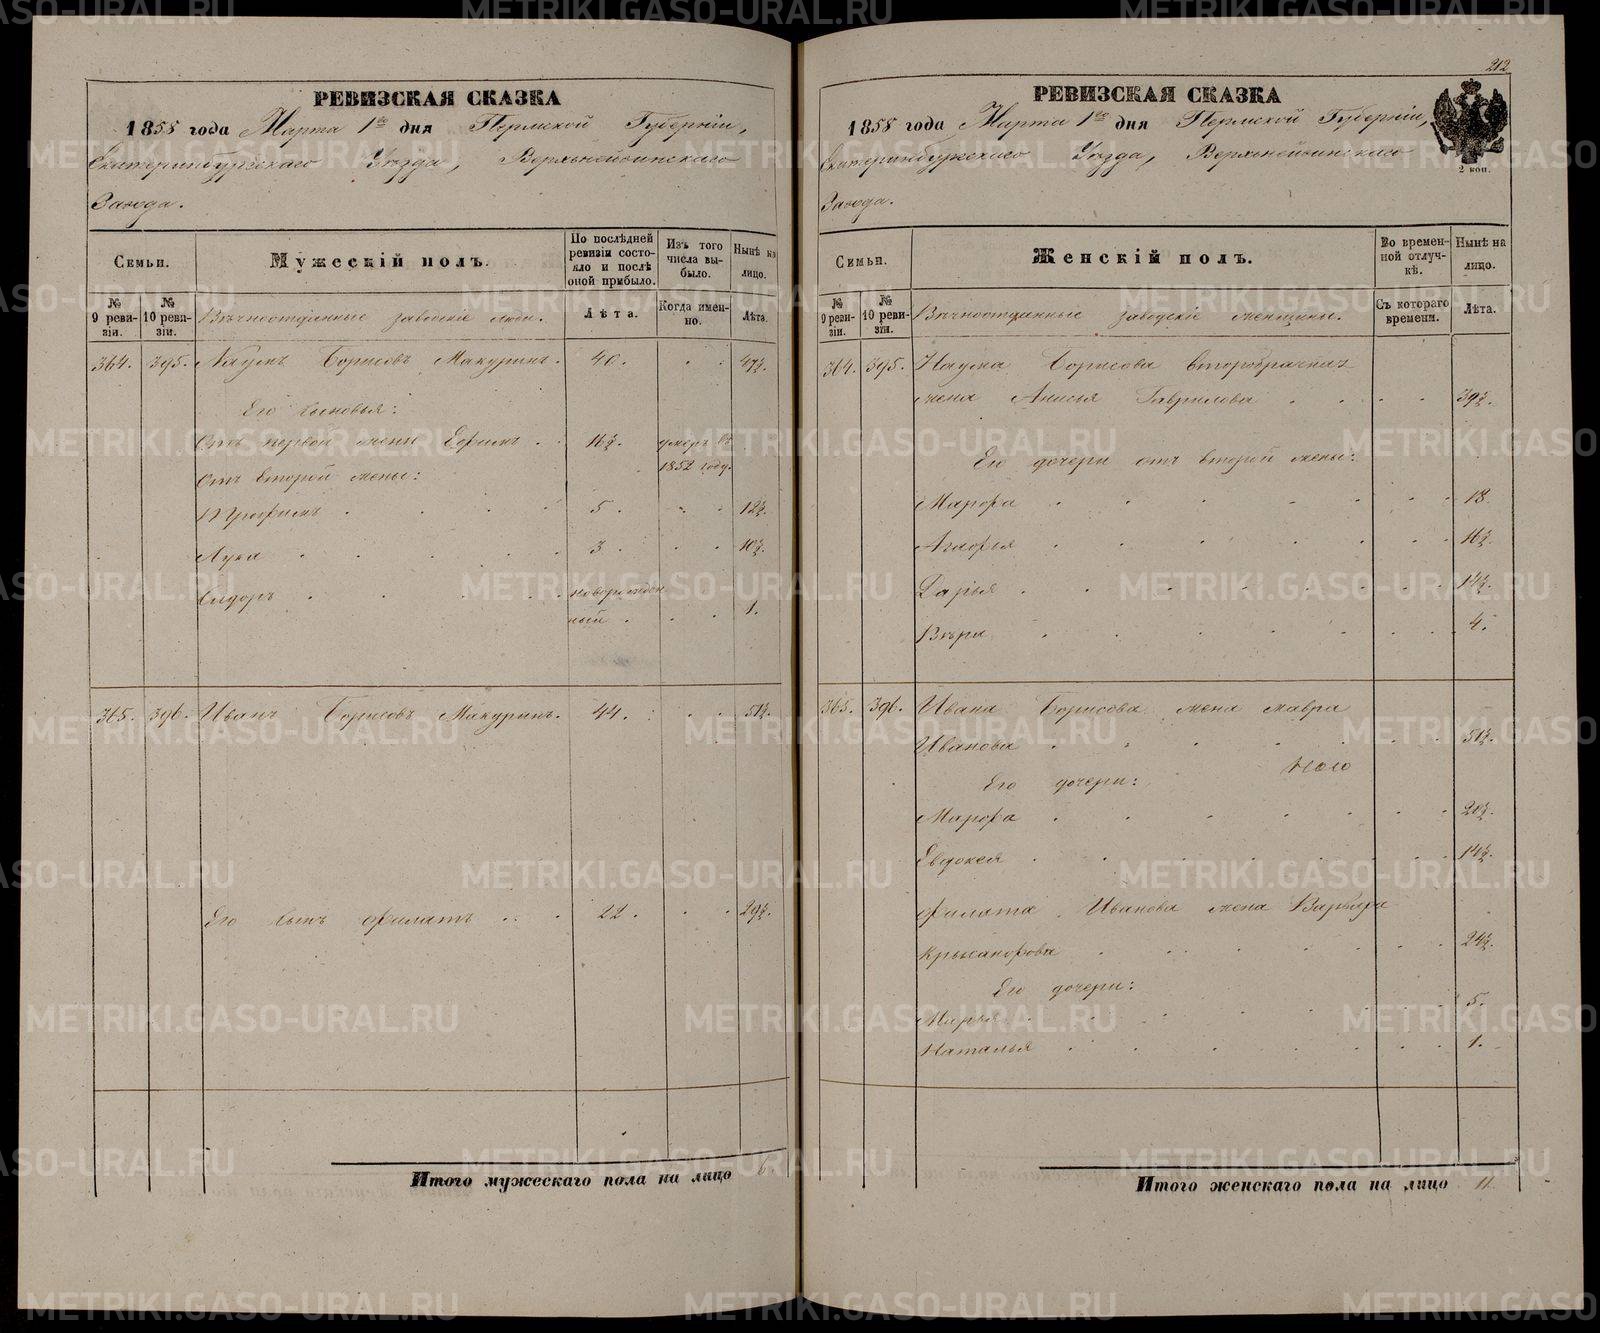 РЕВИЗСКАЯ СКАЗКА
1858 года Марта 1го дня Пермской Губерніи,
Екатеринбургскаго Уѣзда, Верхнейвинскаго
Завода.
Семьи.
Мужескій полъ.
По послѣдней ревизіи состояло и послѣ оной прибыло.
Изъ того числа выбыло.
Нынѣ на лицо.
№ 9 ревизіи.
№ 10 ревизіи.
Вѣчноотданные заводскіе люди.
Лѣта.
Когда именно.
Лѣта.
364. 395. Наумъ Борисовъ Макуринъ. 40. 47½.
Его сыновья:
Отъ первой жены Ефимъ 16½. умеръ въ
1852 году.
Отъ второй жены:
Трофимъ 5. 12½.
Лука 3. 10½.
Сидоръ новорожден
ный 1.
365. 396. Иванъ Борисовъ Макуринъ. 44. 51½.
Его сынъ Филатъ 22. 29½.
Итого мужескаго пола на лицо 6
212
РЕВИЗСКАЯ СКАЗКА
1858 года Марта 1го дня Пермской Губерніи,
Екатеринбургскаго Уѣзда, Верхнейвинскаго
Завода.
2 коп.
Семьи.
Женскій полъ.
Во временной отлучкѣ.
Нынѣ на лицо.
№ 9 ревизіи.
№ 10 ревизіи.
Вѣчноотданные заводскіе женщины.
Съ котораго времени.
Лѣта.
364. 395. Наума Борисова второбрачная
жена Анисья Гаврилова 39½.
Его дочери отъ второй жены:
Марфа 18
Агафья 16½.
Дарья 14½.
Вѣра 4.
365. 396. Ивана Борисова жена Мавра
Иванова 51½.
Его дочери:
Марфа 20½.
Евдокея 14½.
Филата Иванова жена Варвара
Крысанфова 24½.
Его дочери:
Марья 5.
Наталья 1.
Итого женскаго пола на лицо 11
METRIKI.GASO-URAL.RU